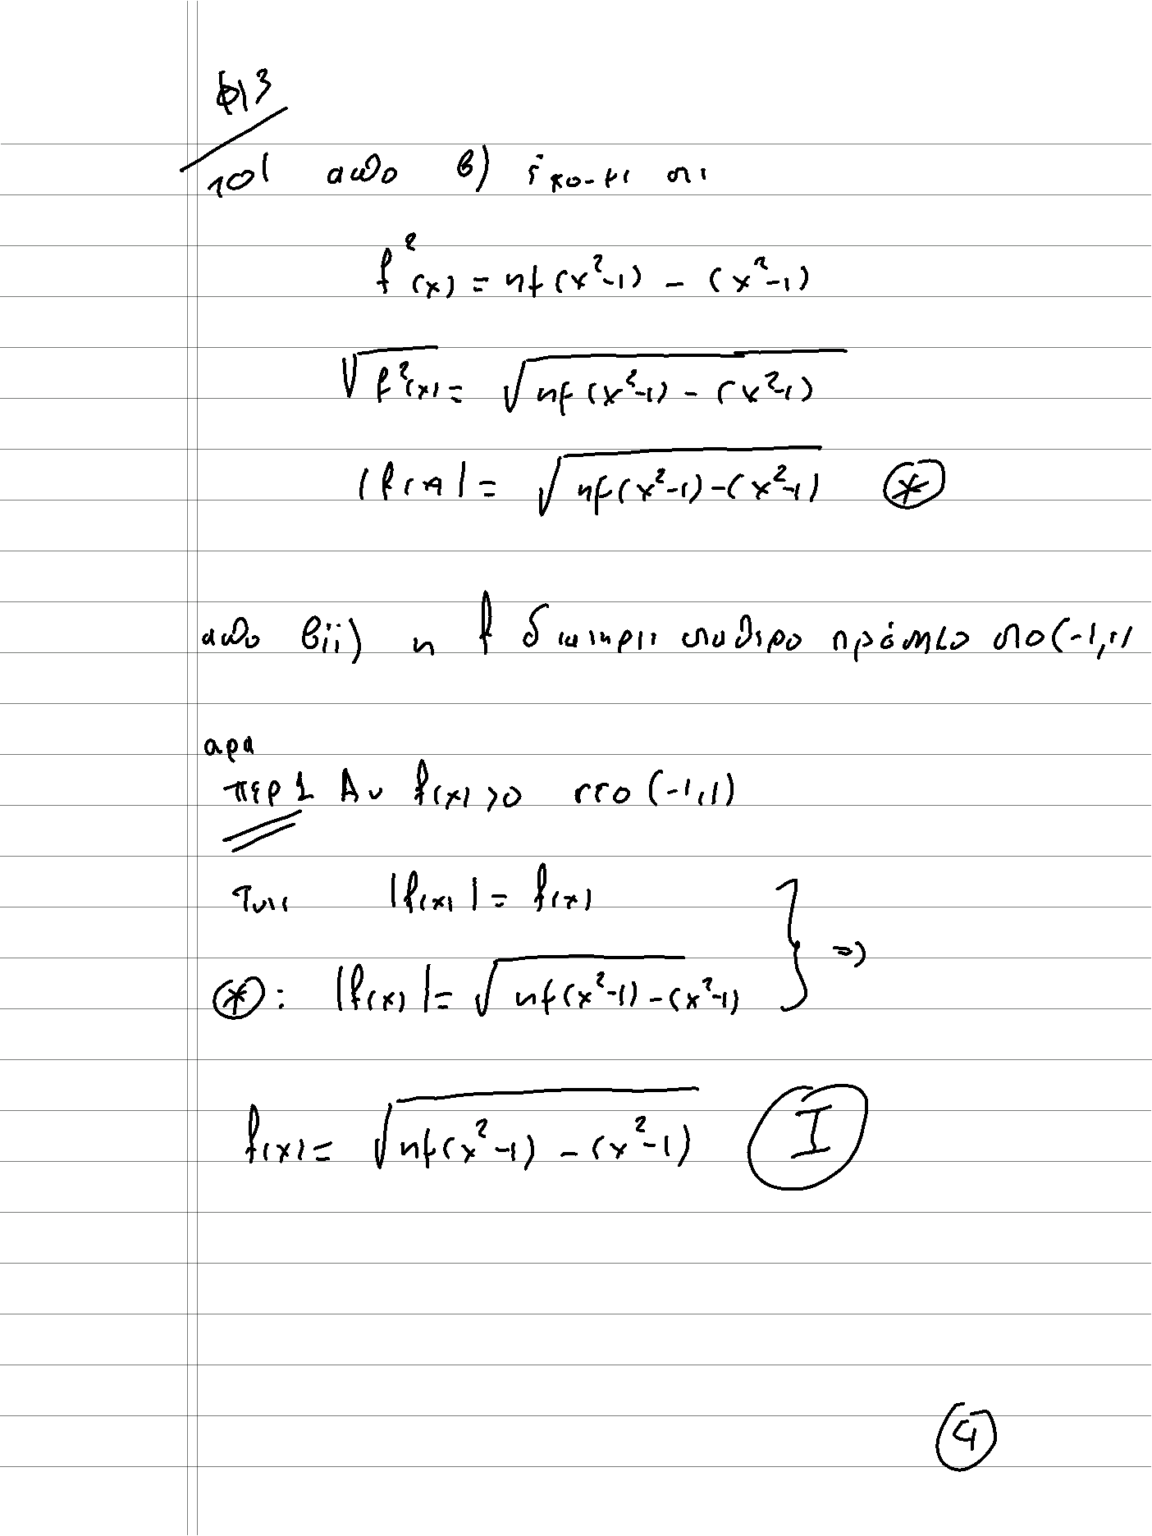 φ13
10| απο β) έχουμε οτι
f²(x) = ημ(x²-1) - (x²-1)
√f²(x) = √ημ(x²-1) - (x²-1)
|f(x)| = √ημ(x²-1)-(x²-1) (*)
απο βii) η f διατηρει σταθερο πρόσημο στο (-1,1)
αρα
περ 1 Αν f(x)>0 στο (-1,1)
τοτε |f(x)| = f(x)
(*): |f(x)| = √ημ(x²-1)-(x²-1) } =>
f(x) = √ημ(x²-1) - (x²-1) (I)
(4)